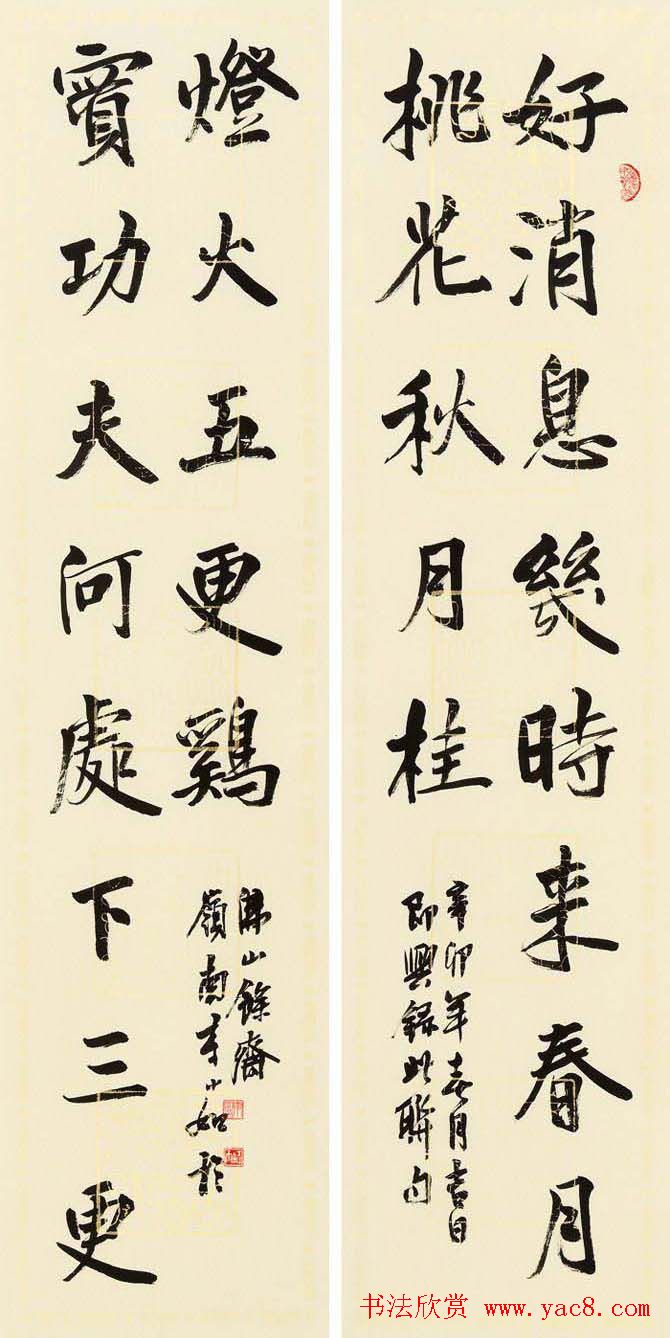 好消息幾時來春月
桃花秋月桂
辛卯年春月吉日
即興錄此聯句
實功夫何處下三更
燈火五更鷄
山餘齋
嶺南李小如
书法欣赏 www.yac8.com